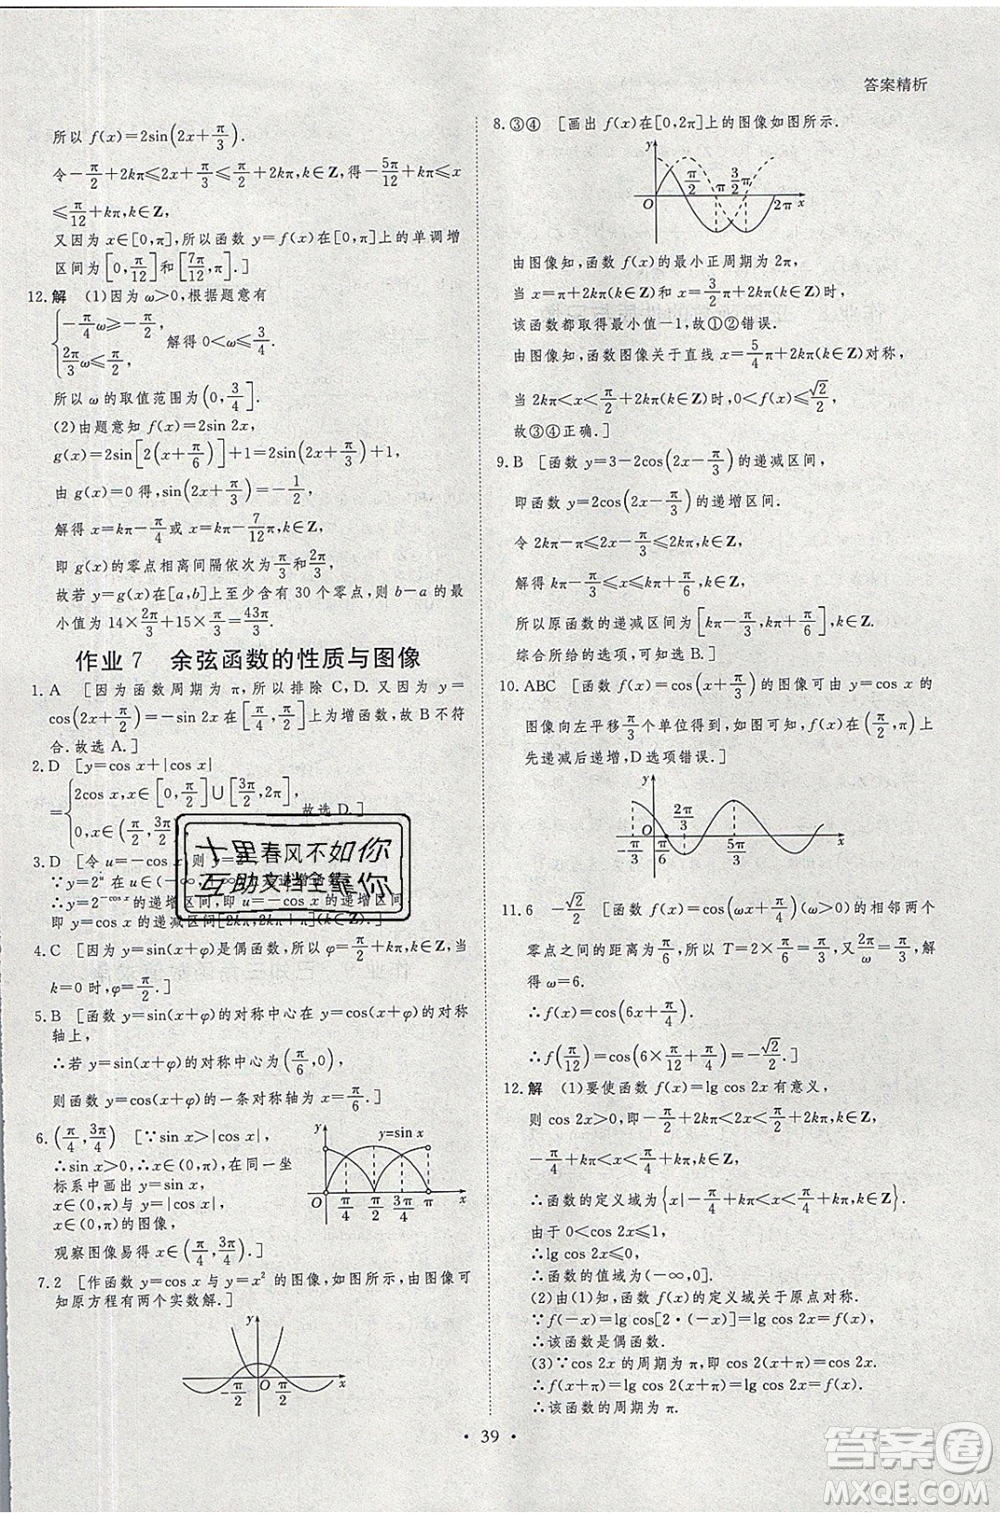 答案精析
所以 f(x)=2sin(2x+π/3).
令-π/2+2kπ≤2x+π/3≤π/2+2kπ,k∈Z,得-5π/12+kπ≤x
≤π/12+kπ,k∈Z.
又因为 x∈[0,π],所以函数 y=f(x)在[0,π]上的单调增
区间为[0,π/12]和[7π/12,π].]
12.解 (1)因为 ω>0,根据题意有
{-π/4ω≥-π/2,
2π/3ω≤π/2, 解得 0<ω≤3/4.
所以 ω 的取值范围为(0,3/4].
(2)由题意知 f(x)=2sin 2x,
g(x)=2sin[2(x+π/6)]+1=2sin(2x+π/3)+1,
由 g(x)=0 得,sin(2x+π/3)=-1/2,
解得 x=kπ-π/4或 x=kπ-7/12π,k∈Z,
即 g(x)的零点相离间隔依次为π/3和2π/3,
故若 y=g(x)在[a,b]上至少含有 30 个零点,则 b-a 的最
小值为 14×2π/3+15×π/3=43π/3.
作业 7 余弦函数的性质与图像
1.A [因为函数周期为 π,所以排除 C,D.又因为 y=
cos(2x+π/2)=-sin 2x在[π/4,π/2]上为增函数,故 B 不符
合.故选 A.]
2.D [y=cos x+|cos x|
={2cos x,x∈[0,π/2]∪[3π/2,2π],
0,x∈(π/2, 故选 D.]
3.D [令 u=-cos x,则 y=2
∵y=2ᵘ在
∴y=2^(-cos x)的递增区间,即u=-cos x的递增区间,
即 y=cos x的递减区间[2kπ,2kπ+π](k∈Z).]
4.C [因为 y=sin(x+φ)是偶函数,所以 φ=π/2+kπ,当
k=0 时,φ=π/2.]
5.B [函数 y=sin(x+φ)的对称中心在 y=cos(x+φ)的对称
轴上,
∴若 y=sin(x+φ)的对称中心为(π/6,0),
则函数 y=cos(x+φ)的一条对称轴为 x=π/6.]
6.(π/4,3π/4) [∵sin x>|cos x|,
∴sin x>0,∴x∈(0,π),在同一坐
标系中画出 y=sin x,
x∈(0,π)与 y=|cos x|,
x∈(0,π)的图像,
观察图像易得 x∈(π/4,3π/4).]
y y=sin x
O π/4 π/2 3π/4 π x
7.2 [作函数 y=cos x 与 y=x²的图像,如图所示,由图像可
知原方程有两个实数解.]
y
-π/2 O π/2 x
39
8.③④ [画出 f(x)在[0,2π]上的图像如图所示.
y π/2 3/2π
O π 2π x
由图像知,函数 f(x)的最小正周期为 2π,
当 x=π+2kπ(k∈Z)和 x=3/2π+2kπ(k∈Z)时,
该函数都取得最小值-1,故①②错误.
由图像知,函数图像关于直线 x=5/4π+2kπ(k∈Z)对称,
当 2kπ<x<π/2+2kπ(k∈Z)时,0<f(x)≤√2/2,
故③④正确.]
9.B [函数 y=3-2cos(2x-π/3)的递减区间,
即函数 y=2cos(2x-π/3)的递增区间.
令 2kπ-π≤2x-π/3≤2kπ,k∈Z,
解得 kπ-π/3≤x≤kπ+π/6,k∈Z,
所以原函数的递减区间为[kπ-π/3,kπ+π/6],k∈Z.
综合所给的选项,故选 B.]
10.ABC [函数 f(x)=cos(x+π/3)的图像可由 y=cos x 的
图像向左平移π/3个单位得到,如图可知,f(x)在(π/2,π)上
先递减后递增,D选项错误.
y 2π/3
-π/3 O π/6 5π/3 x
11.6 -√2/2 [函数 f(x)=cos(ωx+π/4)(ω>0)的相邻两个
零点之间的距离为π/6,所以 T=2×π/6=π/3,又2π/ω=π/3,所以
ω=6.
∴f(x)=cos(6x+π/4),
∴f(π/12)=cos(6×π/12+π/4)=-√2/2.]
12.解 (1)要使函数 f(x)=lg cos 2x 有意义,
则 cos 2x>0,即-π/2+2kπ<2x<π/2+2kπ,k∈Z,
-π/4+kπ<x<π/4+kπ,k∈Z,
∴函数的定义域为{x|-π/4+kπ<x<π/4+kπ,k∈Z}.
由于 0<cos 2x≤1,
∴lg cos 2x≤0,
∴函数的值域为(-∞,0].
(2)由(1)知,函数 f(x)的定义域关于原点对称.
∵f(-x)=lg cos[2·(-x)]=lg cos 2x=f(x),
∴该函数是偶函数.
(3)∵cos 2x 的周期为 π,即 cos 2(x+π)=cos 2x.
∴f(x+π)=lg cos 2(x+π)=lg cos 2x=f(x).
∴该函数的周期为 π.
十里春风不如你
互助文档全靠你
答案圈
MXQE.COM